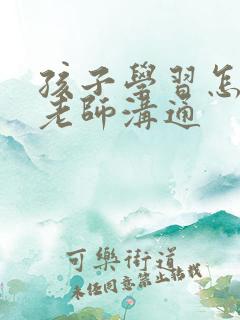 孩子學習怎
老師溝通
可樂街道
未經同意禁止轉載